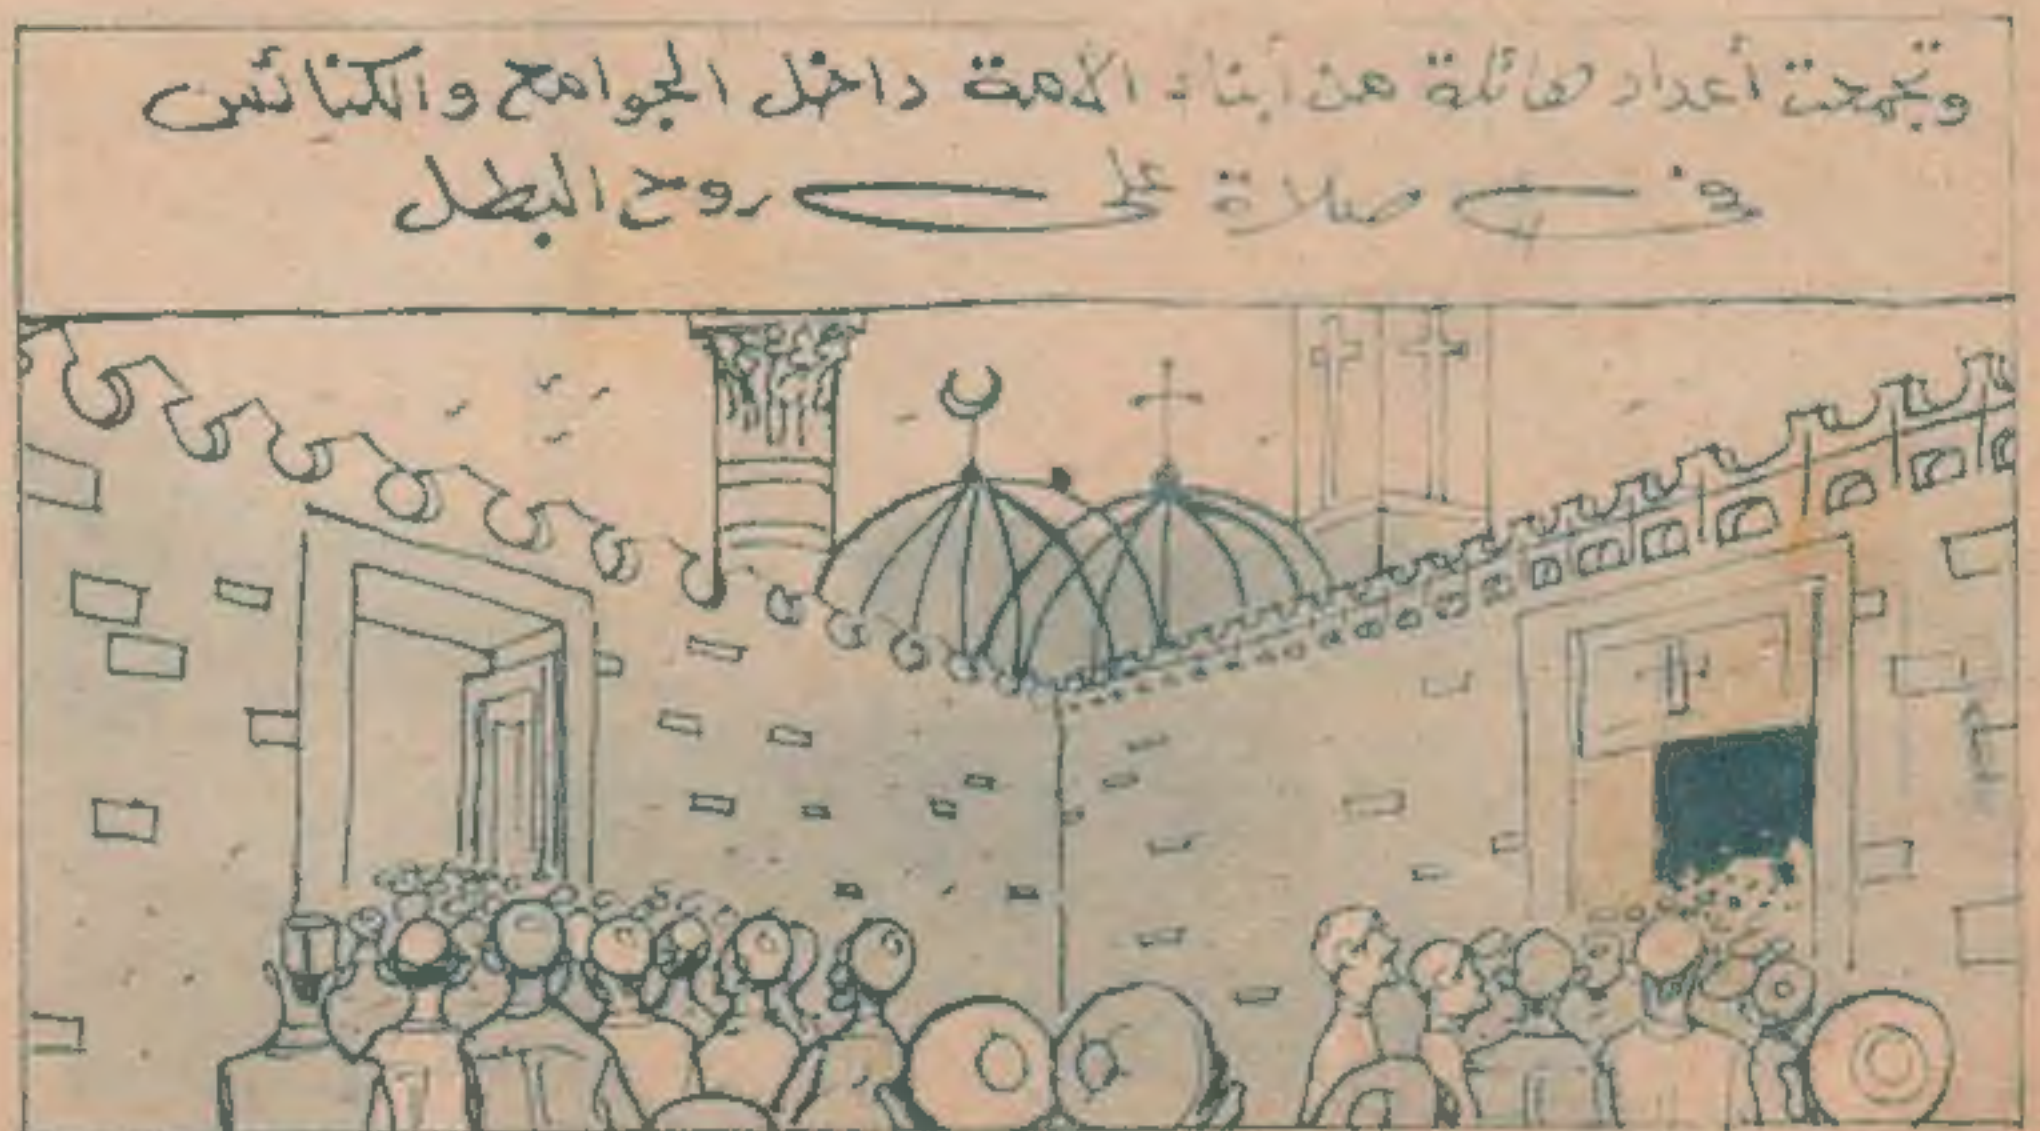 وتجمعت أعداد هائلة من أبناء الأمة داخل الجوامع والكنائس
في صلاة على روح البطل